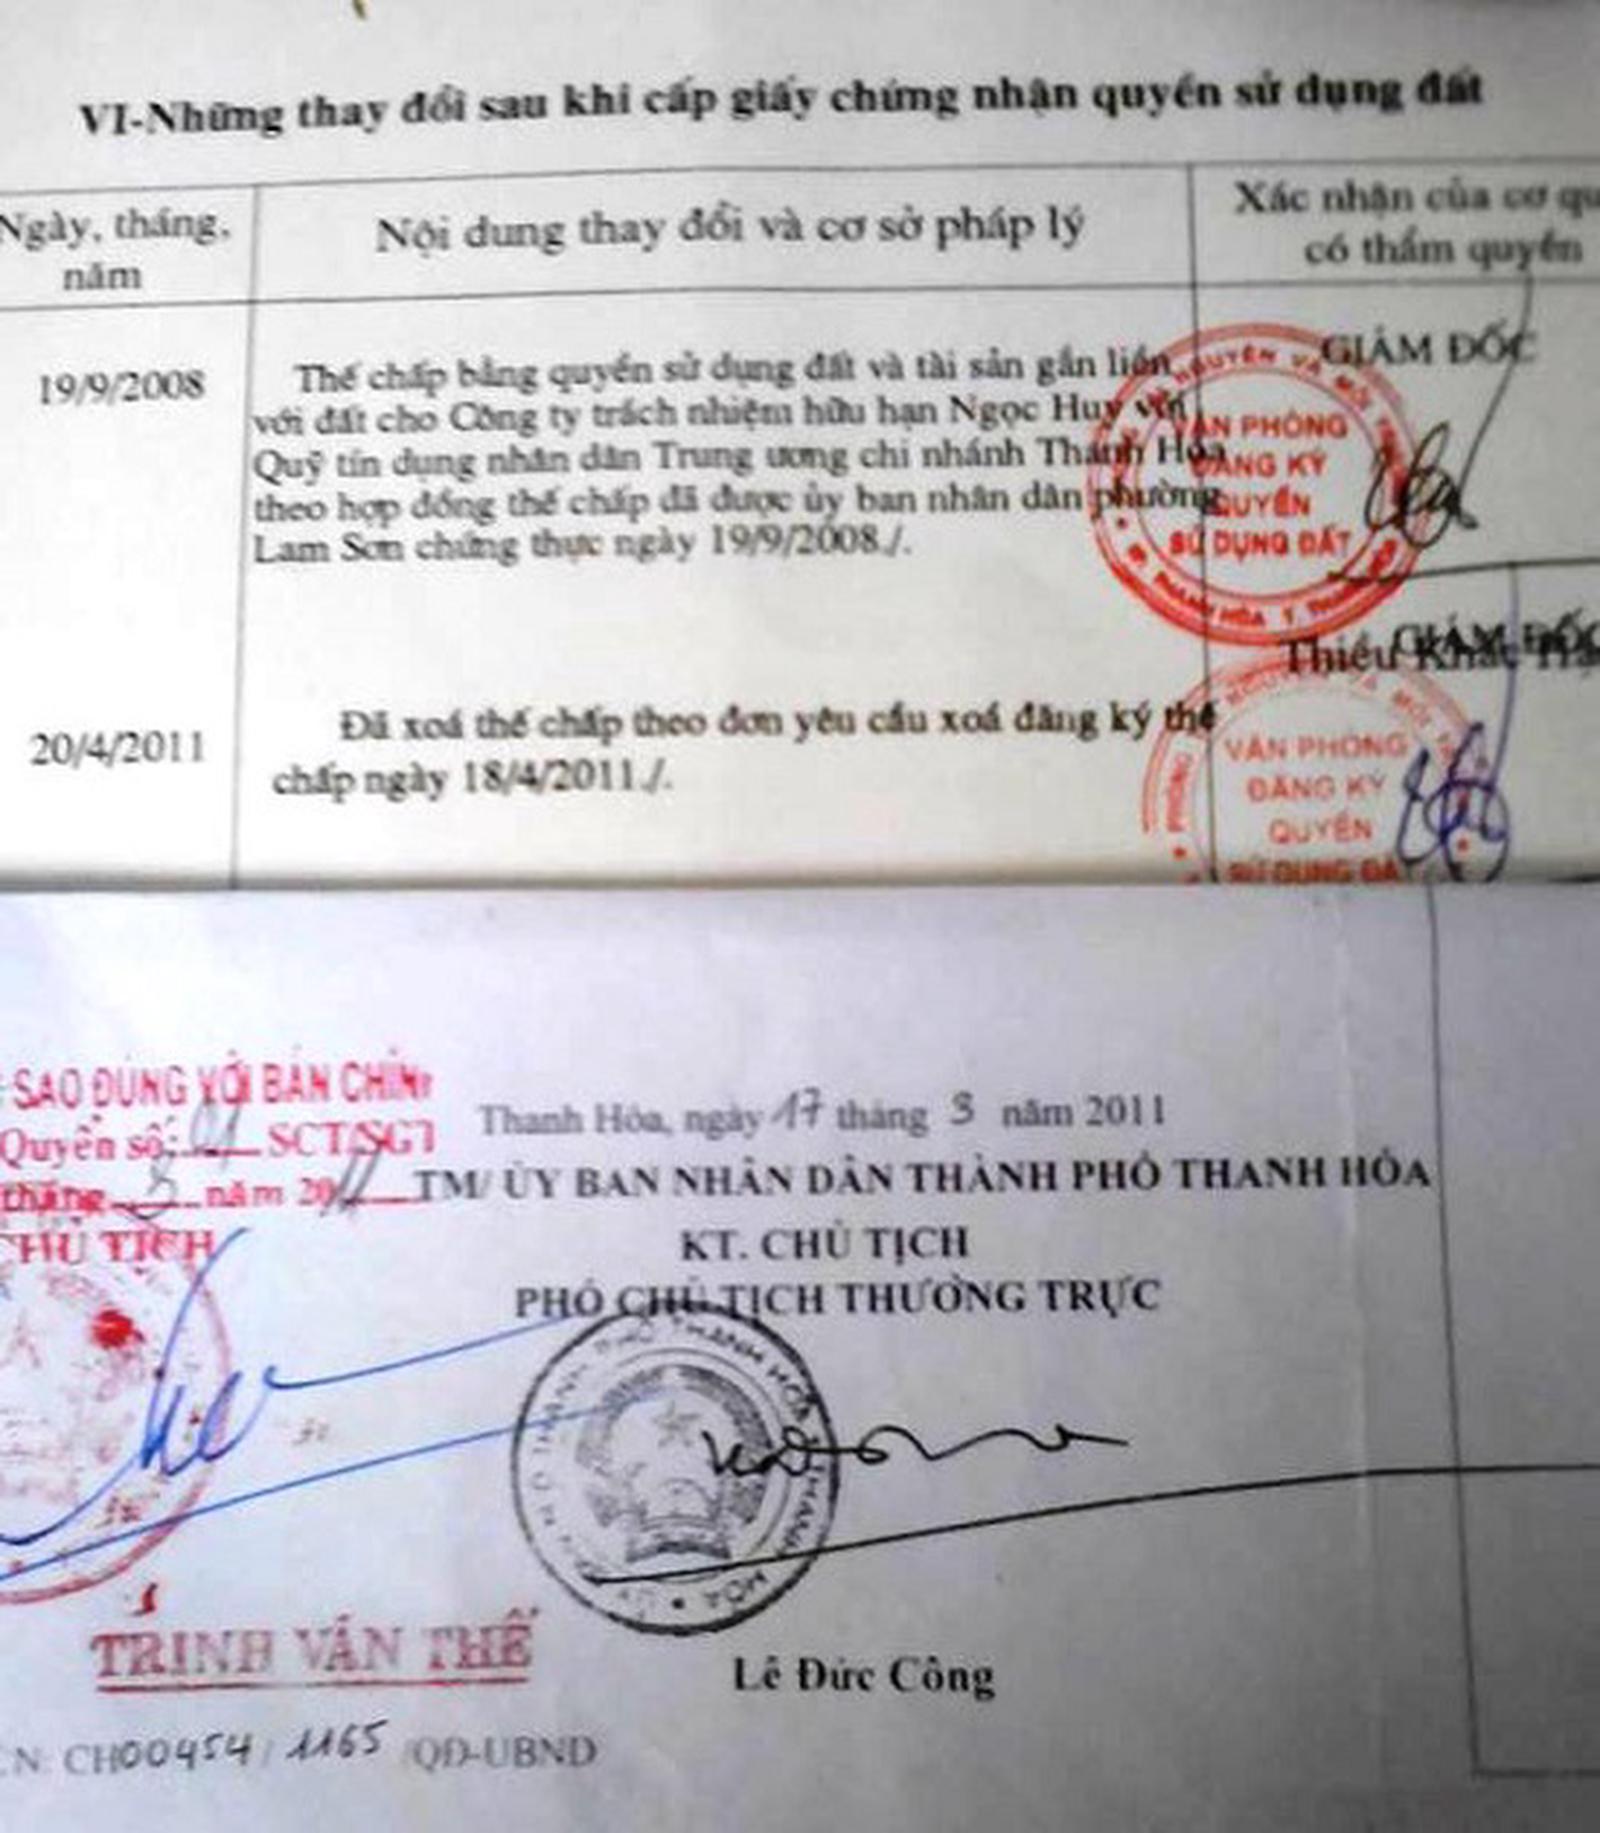 VI-Những thay đổi sau khi cấp giấy chứng nhận quyền sử dụng đất
Ngày, tháng,
năm
Nội dung thay đổi và cơ sở pháp lý
Xác nhận của cơ
có thẩm quyền
19/9/2008
Thế chấp bằng quyền sử dụng đất và tài sản gắn liền
với đất cho Công ty trách nhiệm hữu hạn Ngọc Huy với
Quỹ tín dụng nhân dân Trung ương chi nhánh Thanh Hóa
theo hợp đồng thế chấp đã được ủy ban nhân dân phường
Lam Sơn chứng thực ngày 19/9/2008./.
GIÁM ĐỐC
VĂN PHÒNG
ĐĂNG KÝ
QUYỀN
SỬ DỤNG ĐẤT
Thiều Khắc
GIÁM ĐỐC
20/4/2011
Đã xoá thế chấp theo đơn yêu cầu xoá đăng ký thế
chấp ngày 18/4/2011./.
VĂN PHÒNG
ĐĂNG KÝ
QUYỀN
SỬ DỤNG ĐẤ
SAO ĐÚNG VỚI BẢN CHÍNH
Quyển số: 01 SCT/SGT
tháng 3 năm 2011
CHỦ TỊCH
TRỊNH VĂN THẾ
Thanh Hóa, ngày 17 tháng 3 năm 2011
TM/ ỦY BAN NHÂN DÂN THÀNH PHỐ THANH HÓA
KT. CHỦ TỊCH
PHÓ CHỦ TỊCH THƯỜNG TRỰC
Lê Đức Công
N: CH00454 / 1165 /QĐ-UBND